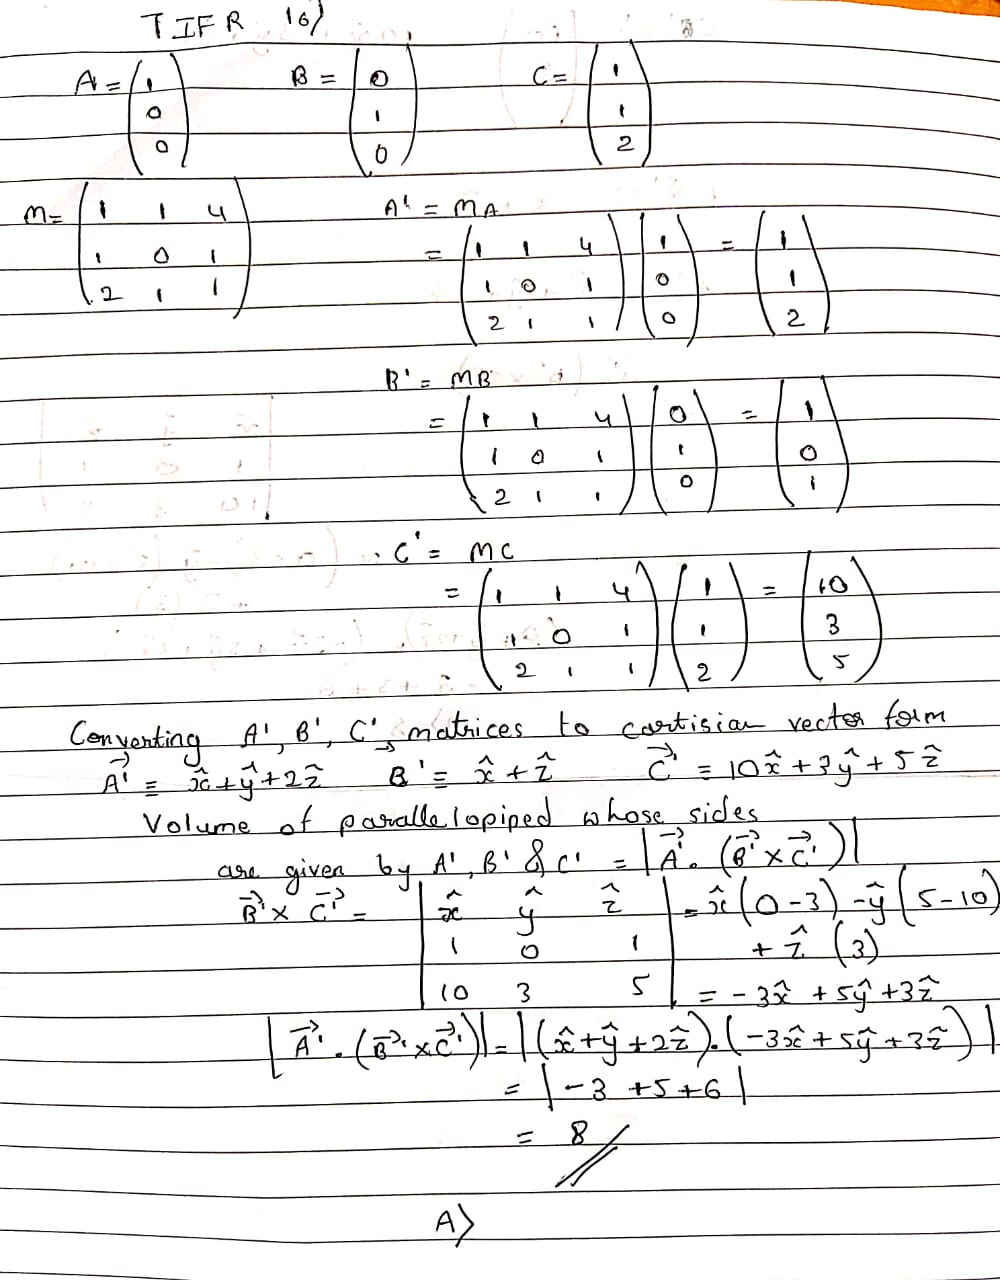 TIFR 16)
A = (1 0 0) B = (0 1 0) C = (1 1 2)
M = (1 1 4
1 0 1
2 1 1)
A' = MA
= (1 1 4
1 0 1
2 1 1) (1 0 0) = (1 1 2)
B' = MB
= (1 1 4
1 0 1
2 1 1) (0 1 0) = (1 0 1)
C' = MC
= (1 1 4
1 0 1
2 1 1) (1 1 2) = (10 3 5)
Converting A', B', C', matrices to cartisian vector form
A⃗' = x̂ + ŷ + 2ẑ B' = x̂ + ẑ C⃗' = 10x̂ + 3ŷ + 5ẑ
Volume of parallelopiped whose sides
are given by A', B' & C' = |A⃗'. (B⃗' × C⃗')|
B⃗' × C⃗' = | x̂ ŷ ẑ | = x̂(0-3) -ŷ(5-10)
1 0 1 + ẑ (3)
10 3 5 | = -3x̂ + 5ŷ + 3ẑ
|A⃗'. (B⃗' × C⃗')| = |(x̂ + ŷ + 2ẑ).(-3x̂ + 5ŷ + 3ẑ)|
= |-3 + 5 + 6|
= 8
A)